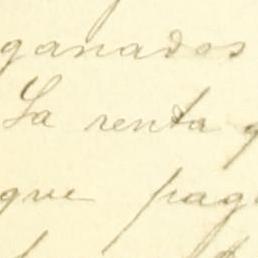 ganados
La renta
que pag